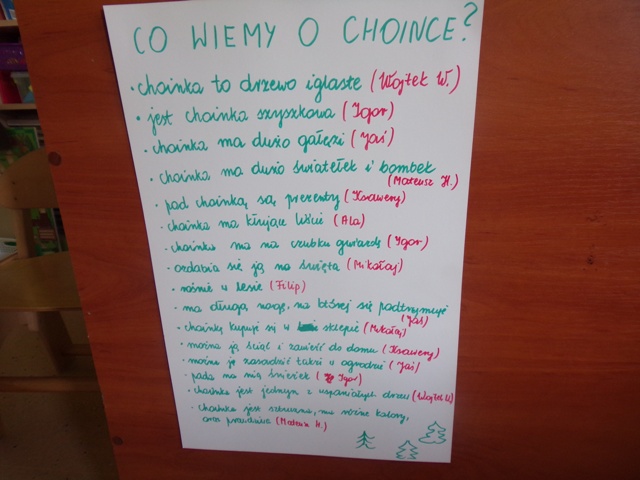 CO WIEMY O CHOINCE?
• choinka to drzewo iglaste (Wojtek W.)
• jest choinka szyszkowa (Igor)
• choinka ma dużo gałęzi (Jaś)
• choinka ma dużo światełek i bombek
(Mateusz H.)
• pod choinką są prezenty (Ksawery)
• choinka ma kłujące liście (Ala)
• choinka ma na czubku gwiazdę (Igor)
• ozdabia się ją na święta (Mikołaj)
• rośnie w lesie (Filip)
• ma długą nogę, na której się podtrzymuje
(Jaś)
• choinkę kupuje się w sklepie (Mikołaj)
• można ją ściąć i zanieść do domu (Ksawery)
• można ją zasadzić także w ogrodzie (Jaś)
• pada na nią śnieżek (Igor)
• choinka jest jednym z wspaniałych drzew (Wojtek W.)
• choinka jest sztuczna, ma różne kolory,
oraz prawdziwa (Mateusz H.)